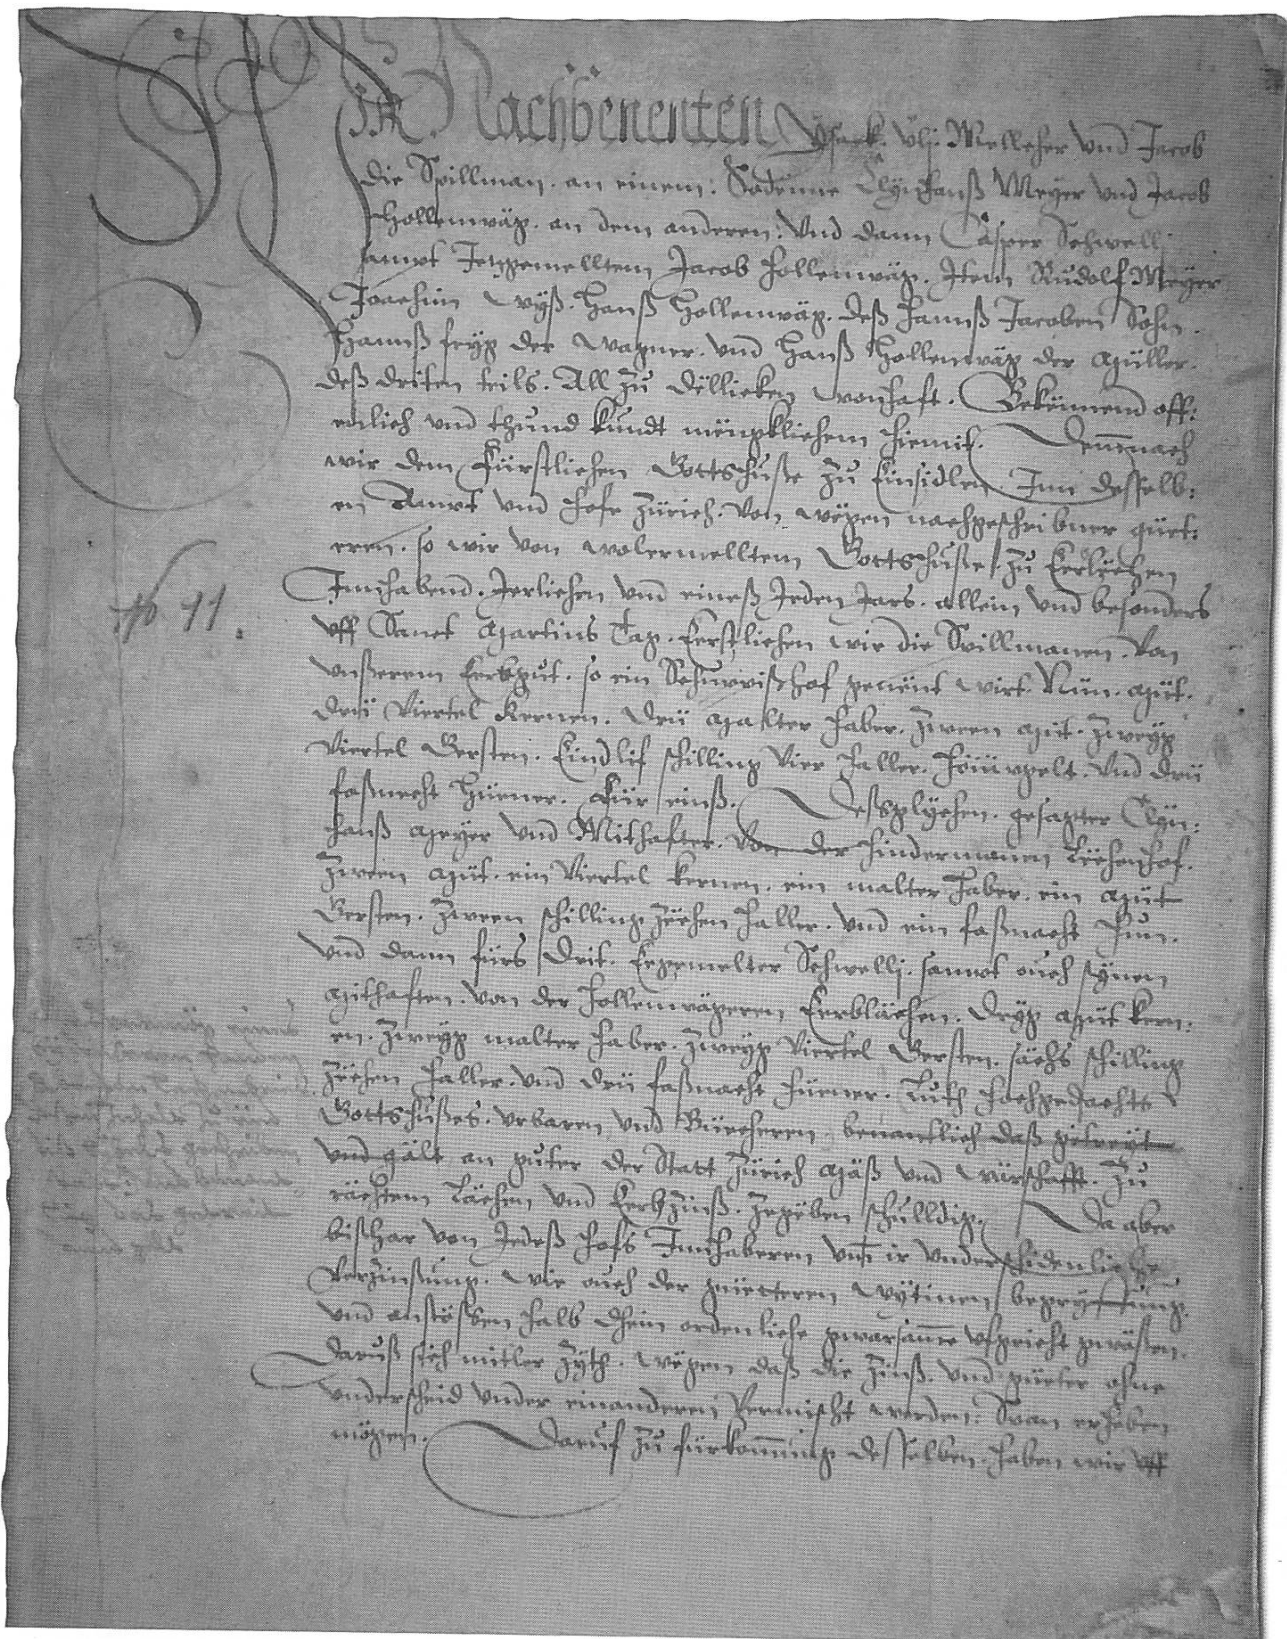 WIR Nachbenenten Ysack. Ulj. Melleher und Jacob
die Spillman. an einem: Sodenne Clÿnhanß Meyer und Jacob
Hollenwäg. an dem anderen: Und dann Casper Schwellj
sampt Jetzgemelltem Jacob Hollenwäg. Item Rudolf Meyer
Joachim Wyß. Hanß Hollenwäg. deß Hannß Jacoben Sohn.
Hannß freyg der Wagner. und Hanß Hollenwäg der Müller.
deß driten teils. All zu Dëllicken wonhaft. Bekennend off:
enlich und thund kundt mëngklichem hiemit. Demnach
wir dem Fürstlichen Gottshuße zu Einsidlen. Inn desselb:
en Ampt und Hofe Zürich. Von wëgen nachgeschribner güet:
eren. so wir von wolermelltem Gottshuße. zu Eerblechen
Innhabend. Jerlichen und eineß Jeden Jars. allein und besonders
uff Sanct Martins Tag. Eerstlichen wir die Spillmanen. Von
unßerem Eerbgut. so ein Schuppisßhof genënt wirt. Nün. Müt.
drü Viertel Kernen. Drü Malter Haber. Zween Müt. Zweyg
Viertel Gersten. Eindlif schilling Vier Haller. Höüwgelt. Und drü
faßnacht Hüener. Für einß. Desglychen. gesagter Clyn:
hanß Meyer und Mithafter. Von der Hindermanen Lëchenhof.
Zween Müt. ein Viertel kernen. ein malter Haber. ein Müt
Gersten. Zween schilling Zëchen Haller. und ein faßnacht Hun.
Und dann fürs Drit. Ergemelter Schwellj. sampt ouch sÿnen
Mithaften. von der Hollenwägeren Eerblächen. Dryg Müt kern:
en. Zweyg malter Haber. Zweyg Viertel Gersten. sächs schilling
Zëchen Haller. und drü faßnacht Hüener. Luth hochgedachts
Gottshußes. Urbaren und Büecheren. benantlich daß getreyt
und gält an guter der Statt Zürich Mäß und Würschafft. Zu
rächtem Lächen und Eerbzinß. Zegëben schulldig. Da aber
bißhar von Jedeß Hofs Innhaberen umb ir underschidenliche
Verzinßung. Wie ouch der güetteren wytinen begryffung.
und anstössen halb dhein ordenliche gwarsamme ufgricht gwäßen.
Daruß sich mitler Zyth. Wëgen daß die Zinß. und güeter ohne
underscheid under einanderen Vermischt werden: Span erheben
mögen. Daruf zu fürkommung desselben. haben wir uff
No 11.